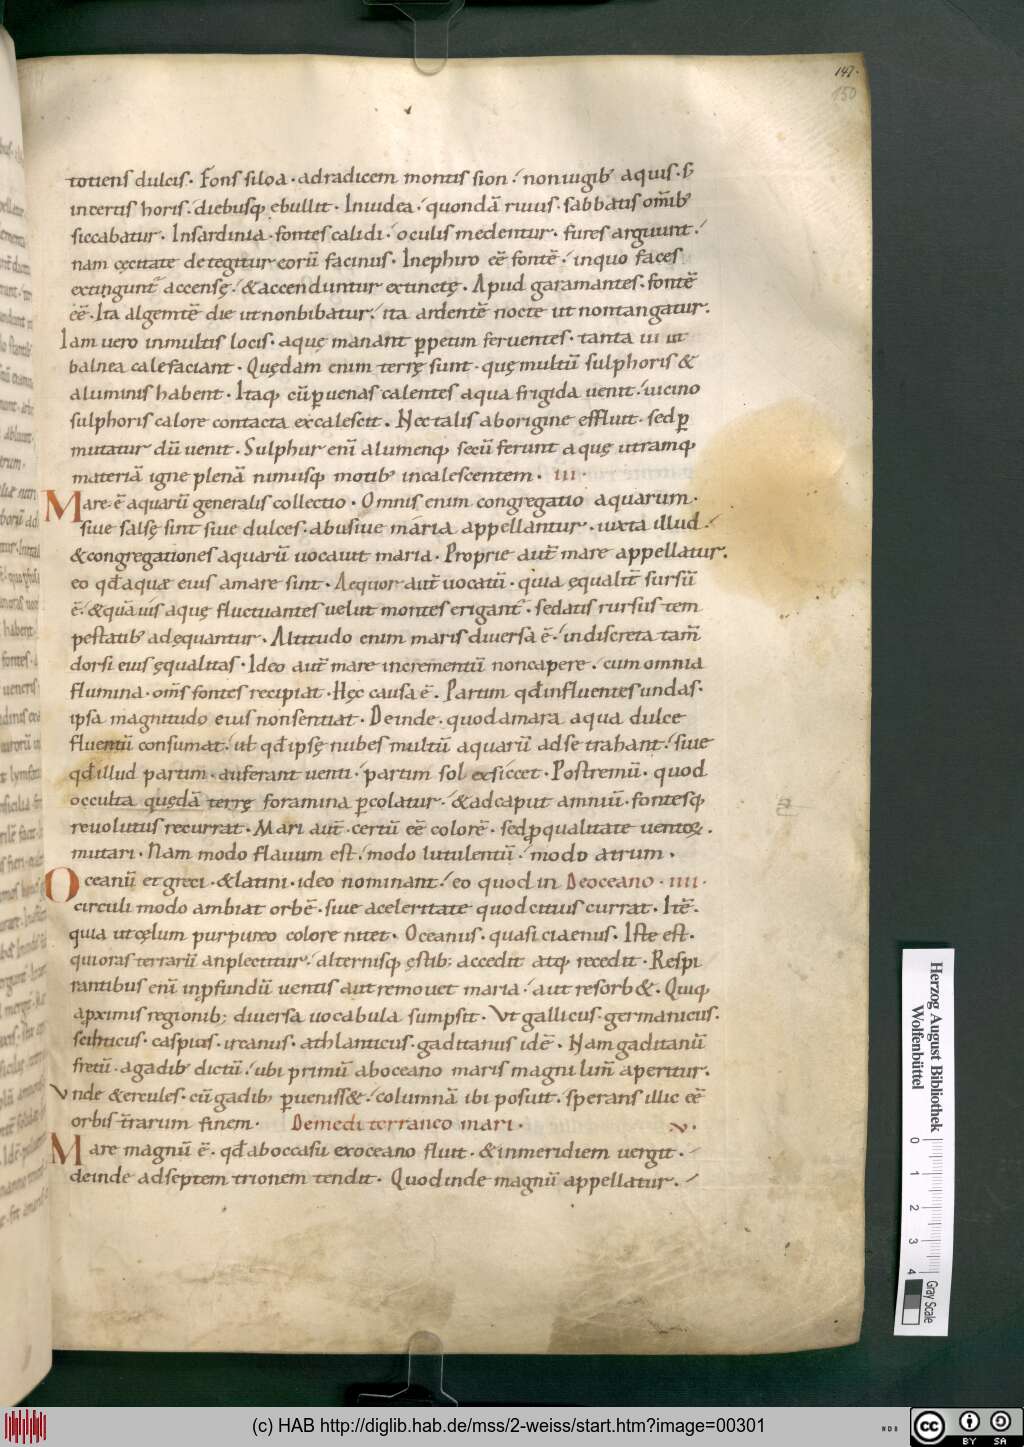 147.
150
totiens dulcis. Fons siloa. adradicem montis sion. nonuigib; aquis. s;
incertis horis. diebusq; ebullit. Iniudea. quondā riuus. sabbatis om̄ib;
siccabatur. Insardinia. fontes calidi. oculis medentur. fures arguunt.
nam cęcitate detegitur eorū facinus. Inephiro eē fontē. inquo faces
extingunt᷑ accensę. &accenduntur extinctę. Apud garamantes. fontē
eē. Ita algentē die utnonbibatur. ita ardentē nocte ut nontangatur.
Iam uero inmultis locis. aquę manant ꝑpetim feruentes. tanta ui ut
balnea calefaciant. Quędam enim terrę sunt. quę multū sulphoris &
aluminis habent. Itaq; cū ꝑ uenas calentes aqua frigida uenit. uicino
sulphoris calore contacta excalescit. Nec talis aborigine effluit. sed ꝑ
mutatur dū uenit. Sulphur enī alumenq; secū ferunt aquę utramq;
materiā igne plenā nimiisq; motib; incalescentem. III.
Mare ē aquarū generalis collectio. Omnis enim congregatio aquarum.
siue salsę sint siue dulces. abusiue maria appellantur. iuxta illud.
&congregationes aquarū uocauit maria. Proprie aut̄ mare appellatur.
eo qđ aquæ eius amare sint. Aequor aut̄ uocatū. quia ęqualit̄ sursū
ē. &quāuis aquę fluctuantes uelut montes erigant᷑. sedatis rursus tem
pestatib; adęquantur. Altitudo enim maris diuersa ē. indiscreta tam̄
dorsi eius ęqualitas. Ideo aut̄ mare incrementū noncapere. cum omnia
flumina. om̄s fontes recipiat. Hęc causa ē. Partim qđ influentes undas.
ipsa magnitudo eius nonsentiat. Deinde. quod amara aqua dulce
fluentū consumat. uł qđ ipsę nubes multū aquarū adse trahant. siue
qđ illud partim. auferant uenti. partim sol exsiccet. Postremū. quod
occulta quędā terrę foramina ꝑcolatur. &adcaput amniū. fontesq;
reuolutus recurrat. Mari aut̄ certū eē colorē. sed ꝓ qualitate uentoꝝ.
mutari. Nam modo flauum est. modo lutulentū. modo atrum.
Oceanū et greci. &latini. ideo nominant. eo quod in Deoceano. IIII.
circuli modo ambiat orbē. siue aceleritate quod citius currat. Itē.
quia ut cęlum purpureo colore nitet. Oceanus. quasi ciaenus. Iste est.
qui oras terrarū anplectitur. alternisq; ęstib; accedit atq; recedit. Respi
rantibus enī inꝓfundū uentis aut remouet maria. aut resorb&. Quiq;
aꝓximis regionib; diuersa uocabula sumpsit. Vt gallicus. germanicus.
scithicus. caspius. ircanus. athlanticus. gaditanus idē. Nam gaditanū
fretū. agadib; dictū. ubi primū aboceano maris magni lim̄ aperitur.
Vnde &ercules. cū gadib; ꝑueniss&. columnā ibi posuit. sperans illic eē
orbis t̄rarum finem. Demedi terraneo mari. V.
Mare magnū ē. qđ aboccasu exoceano fluit. &inmeridiem uergit.
deinde adseptem trionem tendit. Quod inde magnū appellatur.
Herzog August Bibliothek
Wolfenbüttel
0 1 2 3 4
Gray Scale
(c) HAB http://diglib.hab.de/mss/2-weiss/start.htm?image=00301
cc BY SA